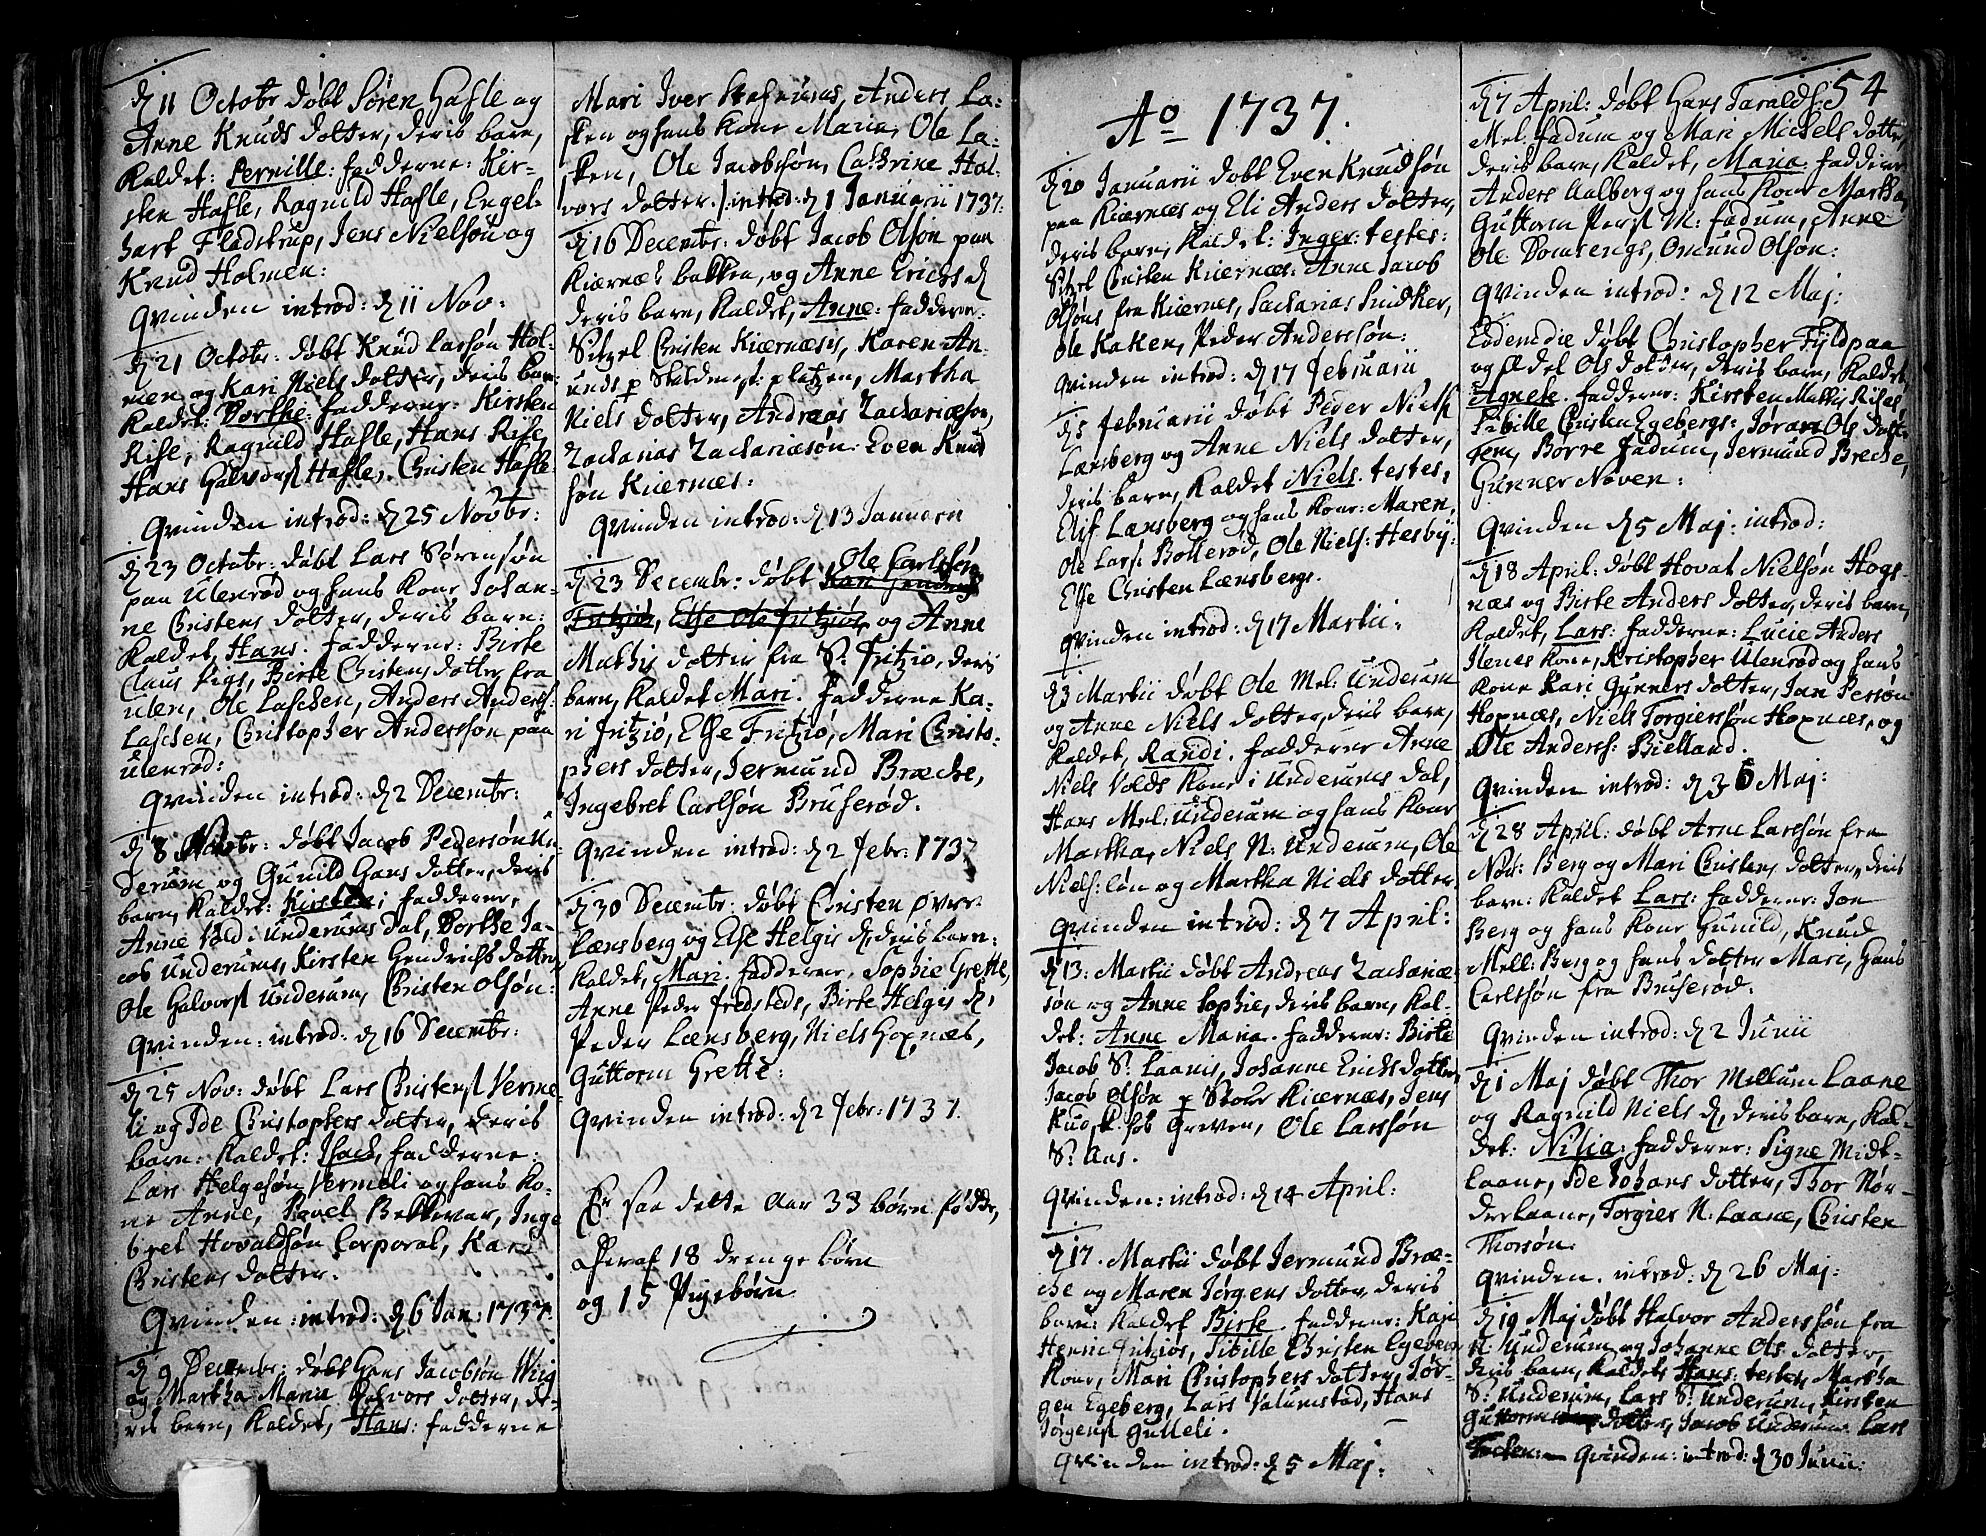 d 11 Octobr døbt Søren Hafle og
Anne Knuds dotter, deris barn,
Kaldet: Pernille: fadderne: Kir-
sten Hafle, Ragnild Hafle, Engel-
hart Fladstrup, Jens Nielsøn og
Knud Holmen:
Qvinden introd: d 11 Nov:
d 21 Octobr: døbt Knud Larsøn Hol-
men og Kari Niels dotter, deris barn
Kaldet: Dorthe: fadderne: Kirsten
Rise, Ragnild Hafle, Hans Rise,
Hans Halvors Hafle, Christen Hafle
Qvinden introd: d 25 Novbr:
d 23 Octobr: døbt Lars Sørensøn
paa Ulenrød og hans Kone Johan-
ne Christens dotter, deris barn:
Kaldet, Hans. fadderne: Birte
Claus Pigs, Birte Christens dotter fra
Ulen, Ole Laschen, Anders Anders:
Laschen, Christopher Anderssøn paa
Ulenrød:
Qvinden introd: d 2 Decembr:
d 8 Novbr: døbt Jacob Pedersøn Un-
derum og Gunild Hans dotter, deris
barn, Kaldet: Kirsten: fadderne,
Anne Vold i Underums dal, Dorthe Ja-
cob Underums, Kirsten Hendrichs dotter,
Ole Halvors Underum, Christen Olsøn:
Qvinden: introd: d 16 Decembr:
d 25 Nov: døbt Lars Christens Verme-
li og Ide Christophers dotter, deris
barn: Kaldet: Isach, fadderne:
Lars Helgesøn Vermeli og hans Ko-
ne Anne, Povel Bekkevar, Inge
bret Hovaldsøn Corporal, Kari
Christens dotter.
Qvinden: introd: d 6 Jan: 1737.
d 9 Decembr: døbt Hans Jacobsøn Wiig
og Martha Maria Halvors dotter, de-
ris barn, Kaldet, Hans: fadderne
Mari Iver Stafnums, Anders La-
sken og hans Kone Maria, Ole La-
sken, Ole Jacobsøn, Cathrine Hal-
vors dotter. introd: d 1 Januarii 1737.
d 16 Decembr: døbt Jacob Olsøn paa
Kiærnæs bakken, og Anne Erichs d
deris barn, Kaldet, Anne: fadderne:
Sitzel Christen Kiærnæsis, Karen An-
unds p platzen, Martha
Niels dotter, Andreas Zachariæsøn,
Zacharias Zachariæsøn. Even Knud
søn Kiærnæs:
Qvinden introd: d 13 Januarii
Ole Carlsøn
d 23 Decembr: døbt
Fritziø, Else Ole Fritziø, og Anne
Mathis dotter fra S: Fritziø, deris
barn, Kaldet Mari. fadderne Ka-
ri Fritziø, Else Fritziø, Mari Christo-
phers dotter, Jermund Bræche,
Ingebret Carlsøn Bruserød.
Qvinden introd: d 2 Febr: 1737
d 30 Decembr: døbt Christen Øvre
Lænsberg og Else Helgis d, deris barn:
Kaldet, Mari. fadderne. Sophie Grette,
Anne Peder Fredsteds, Birte Helgis d,
Peder Lænsberg, Niels Hopnæs,
Guttorm Grette:
Qvinden introd: d 2 Febr: 1737.
Er saa dette Aar 33 børn fødde,
Heraf 18 drenge børn
og 15 Pigebørn
54
Ao 1737.
d 20 Januarii døbt Even Knudsøn
paa Kiærnæs og Eli Anders dotter,
deris barn, Kaldet: Inger: testes:
Sitzel Christen Kiærnæs: Anne Jacob
Olsøns fra Kiærnes, Zacharias Snidker,
Ole Kaken, Peder Anderssøn:
Qvinden introd: d 17 Februarii
d 5 Februarii døbt Peder Niels
Lænsberg og Anne Niels dotter,
deris barn, Kaldet Niels. testes,
Elif Lænsberg og hans Kone: Maren,
Ole Lars: Bollerød, Ole Niels: Hesby:
Else Christen Lænsbergs.
Qvinden introd: d 17 Martii:
d 3 Martii døbt Ole Mel: Underum
og Anne Niels dotter, deris barn,
Kaldet, Randi. fadderne Anne
Niels Volds Kone i Underums dal,
Hans Mel: Underum og hans Kone
Martha, Niels N: Underum, Ole
Niels: søn og Martha Niels dotter.
Qvinden introd: d 7 April:
d 13: Martii døbt Andreas Zachariæ
søn og Anne Sophie, deris barn, Kal-
det: Anne Maria. fadderne: Birte
Jacob S: Laanis, Johanne Erichs dotter,
Jacob Olsøn p Store Kiærnæs, Jens
Greven, Ole Larssøn
S: Aas.
Qvinden: introd: d 14 April:
d 17. Martii døbt Jermund Bræ-
che og Maren Jørgens dotter, deris
barn: Kaldet Birte. fadderne: Kari
Henric Fritziøs, Sibille Christen Egebergs
Kone, Mari Christophers dotter, Jør-
gen Egeberg, Lars Valumstad, Hans
Jørgens Gulleli.
Qvinden introd: d 5 Maj:
d 7 April: døbt Hans Taralds:
Mel. Fadum og Mari Michels dotter,
deris barn, Kaldet, Maria. fadderne
Anders Aalberg og hans Kone Martha,
Guttorm Pers M: Fadum, Anne
Ole Domtengs, Omund Olsøn:
Qvinden introd: d 12 Maj:
Eodem die døbt Christopher Fyldpaa
og Sidsel Ols dotter, deris barn, Kaldet,
Agnete. fadderne: Kirsten Mathis Rises
Sibille Christen Egebergs:, Jøran Ols dott-
ter, Børre Fadum, Jermund Breche,
Gunner Nøven:
Qvinden d 5 Maj: introd:
d 18 April: døbt Hovat Nielsøn Hogs-
næs og Birte Anders dotter, deris barn,
Kaldet, Lars: fadderne: Lucie Anders
Ilenes Kone, Kristopher Ulenrød og hans
Kone Kari Gunners dotter, Jan Persøn
Hopnæs, Niels Torgierssøn Hopnæs, og
Ole Anders: Bielland.
Qvinden introd: d 26 Maj:
d 28 April: døbt Arne Larssøn fra
Nør: Berg og Mari Christens dotter, deris
barn: Kaldet Lars: fadderne: Jon
Berg og hans Kone Gunild, Knud
Mell: Berg og hans dotter Mari, Hans
Carlssøn fra Bruserød:
Qvinden introd: d 2 Junii
d 1 Maj døbt Thor Mellum Laane
og Ragnild Niels d, deris barn, Kal-
det: Nilia: fadderne: Signe Midt-
Laane, Ide Johans dotter, Thor Nør-
dre Laane, Torgier N: Laane, Christen
Thorsøn.
Qvinden. introd: d 26 Maj:
d 19 Maj døbt Halvor Anderssøn fra
N: Underum og Johanne Ols dotter,
deris barn, Kaldet Hans: testes Martha
S: Underum, Lars S: Underum, Kirsten
Guttorms dotter, Jacob Underum Lars
Qvinden: introd: d 30 Junii: